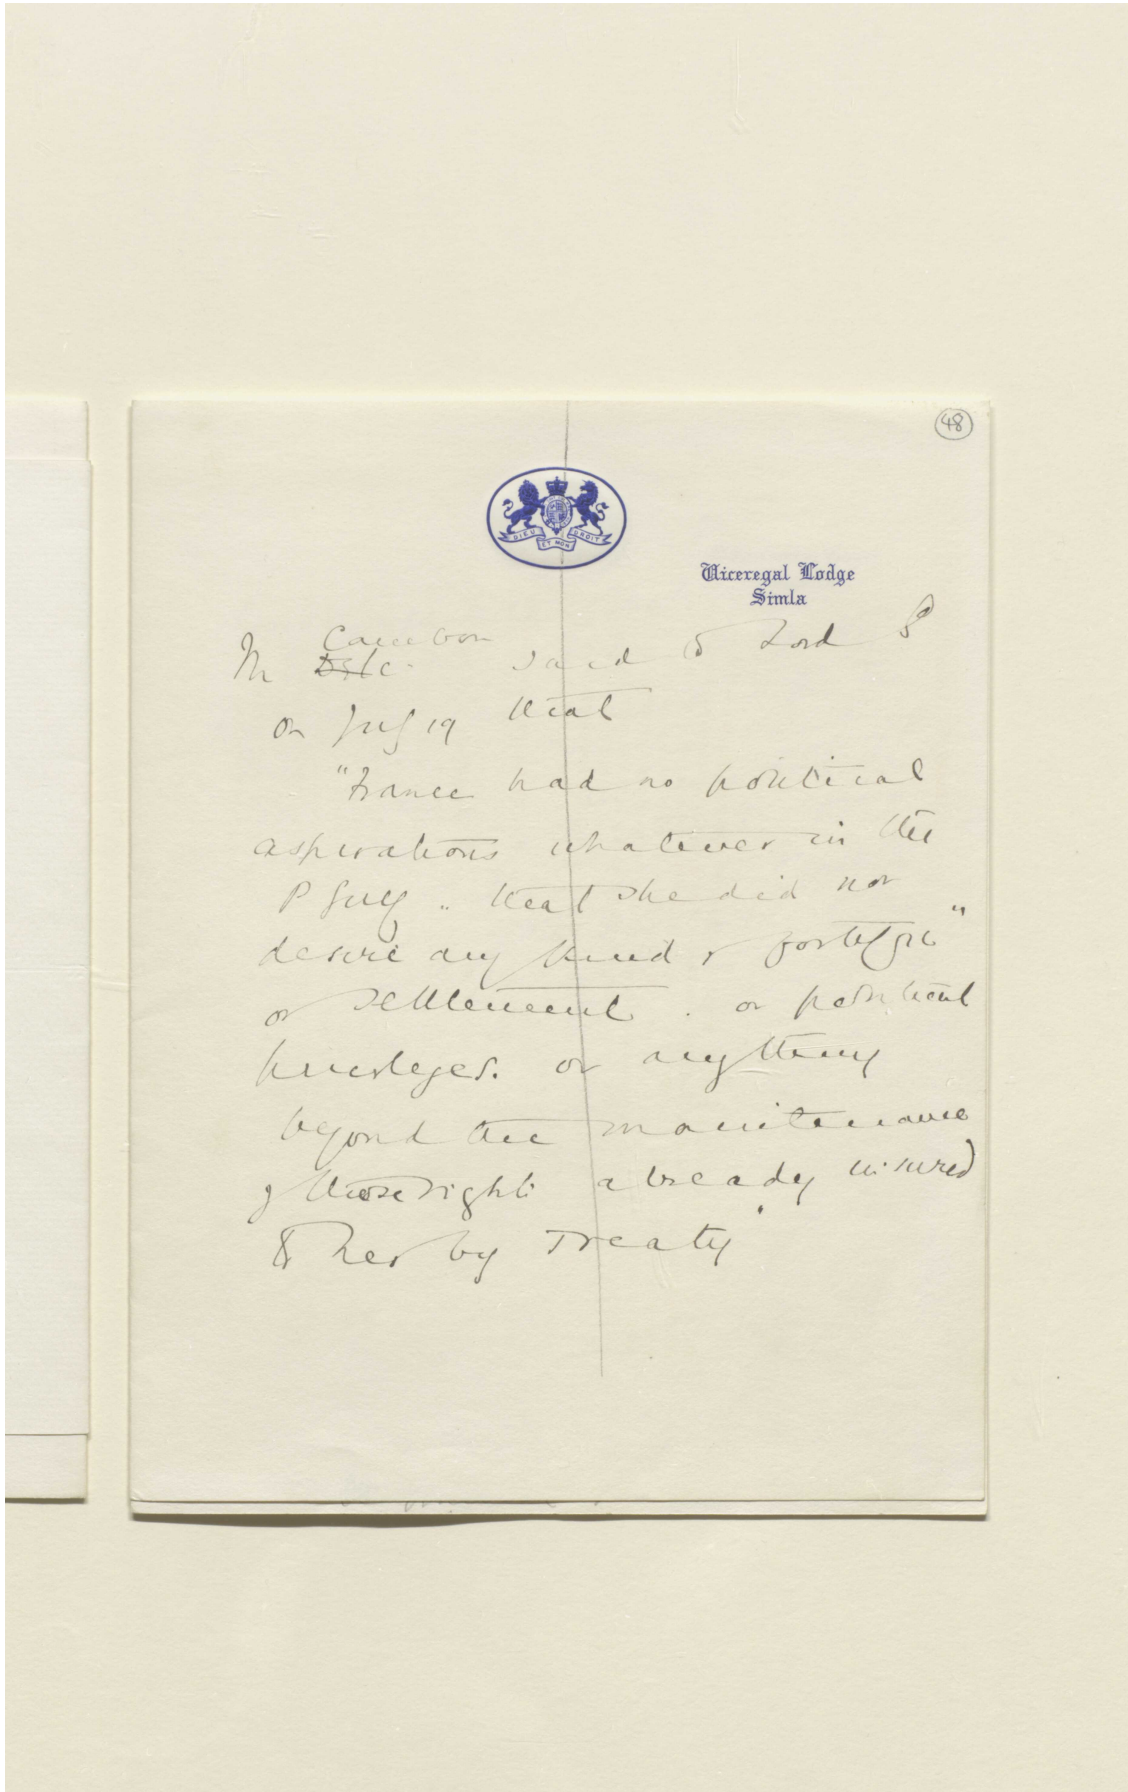 48
DIEU ET MON DROIT
Viceregal Lodge
Simla
Cambon
M said to Lord S
on July 19 that
"France had no political
aspirations whatever in the
P Gulf .. that she did not
desire any kind of fortifn"
or settlement . or political
privileges. or anything
beyond the maintenance
of those rights already insured
to her by Treaty"